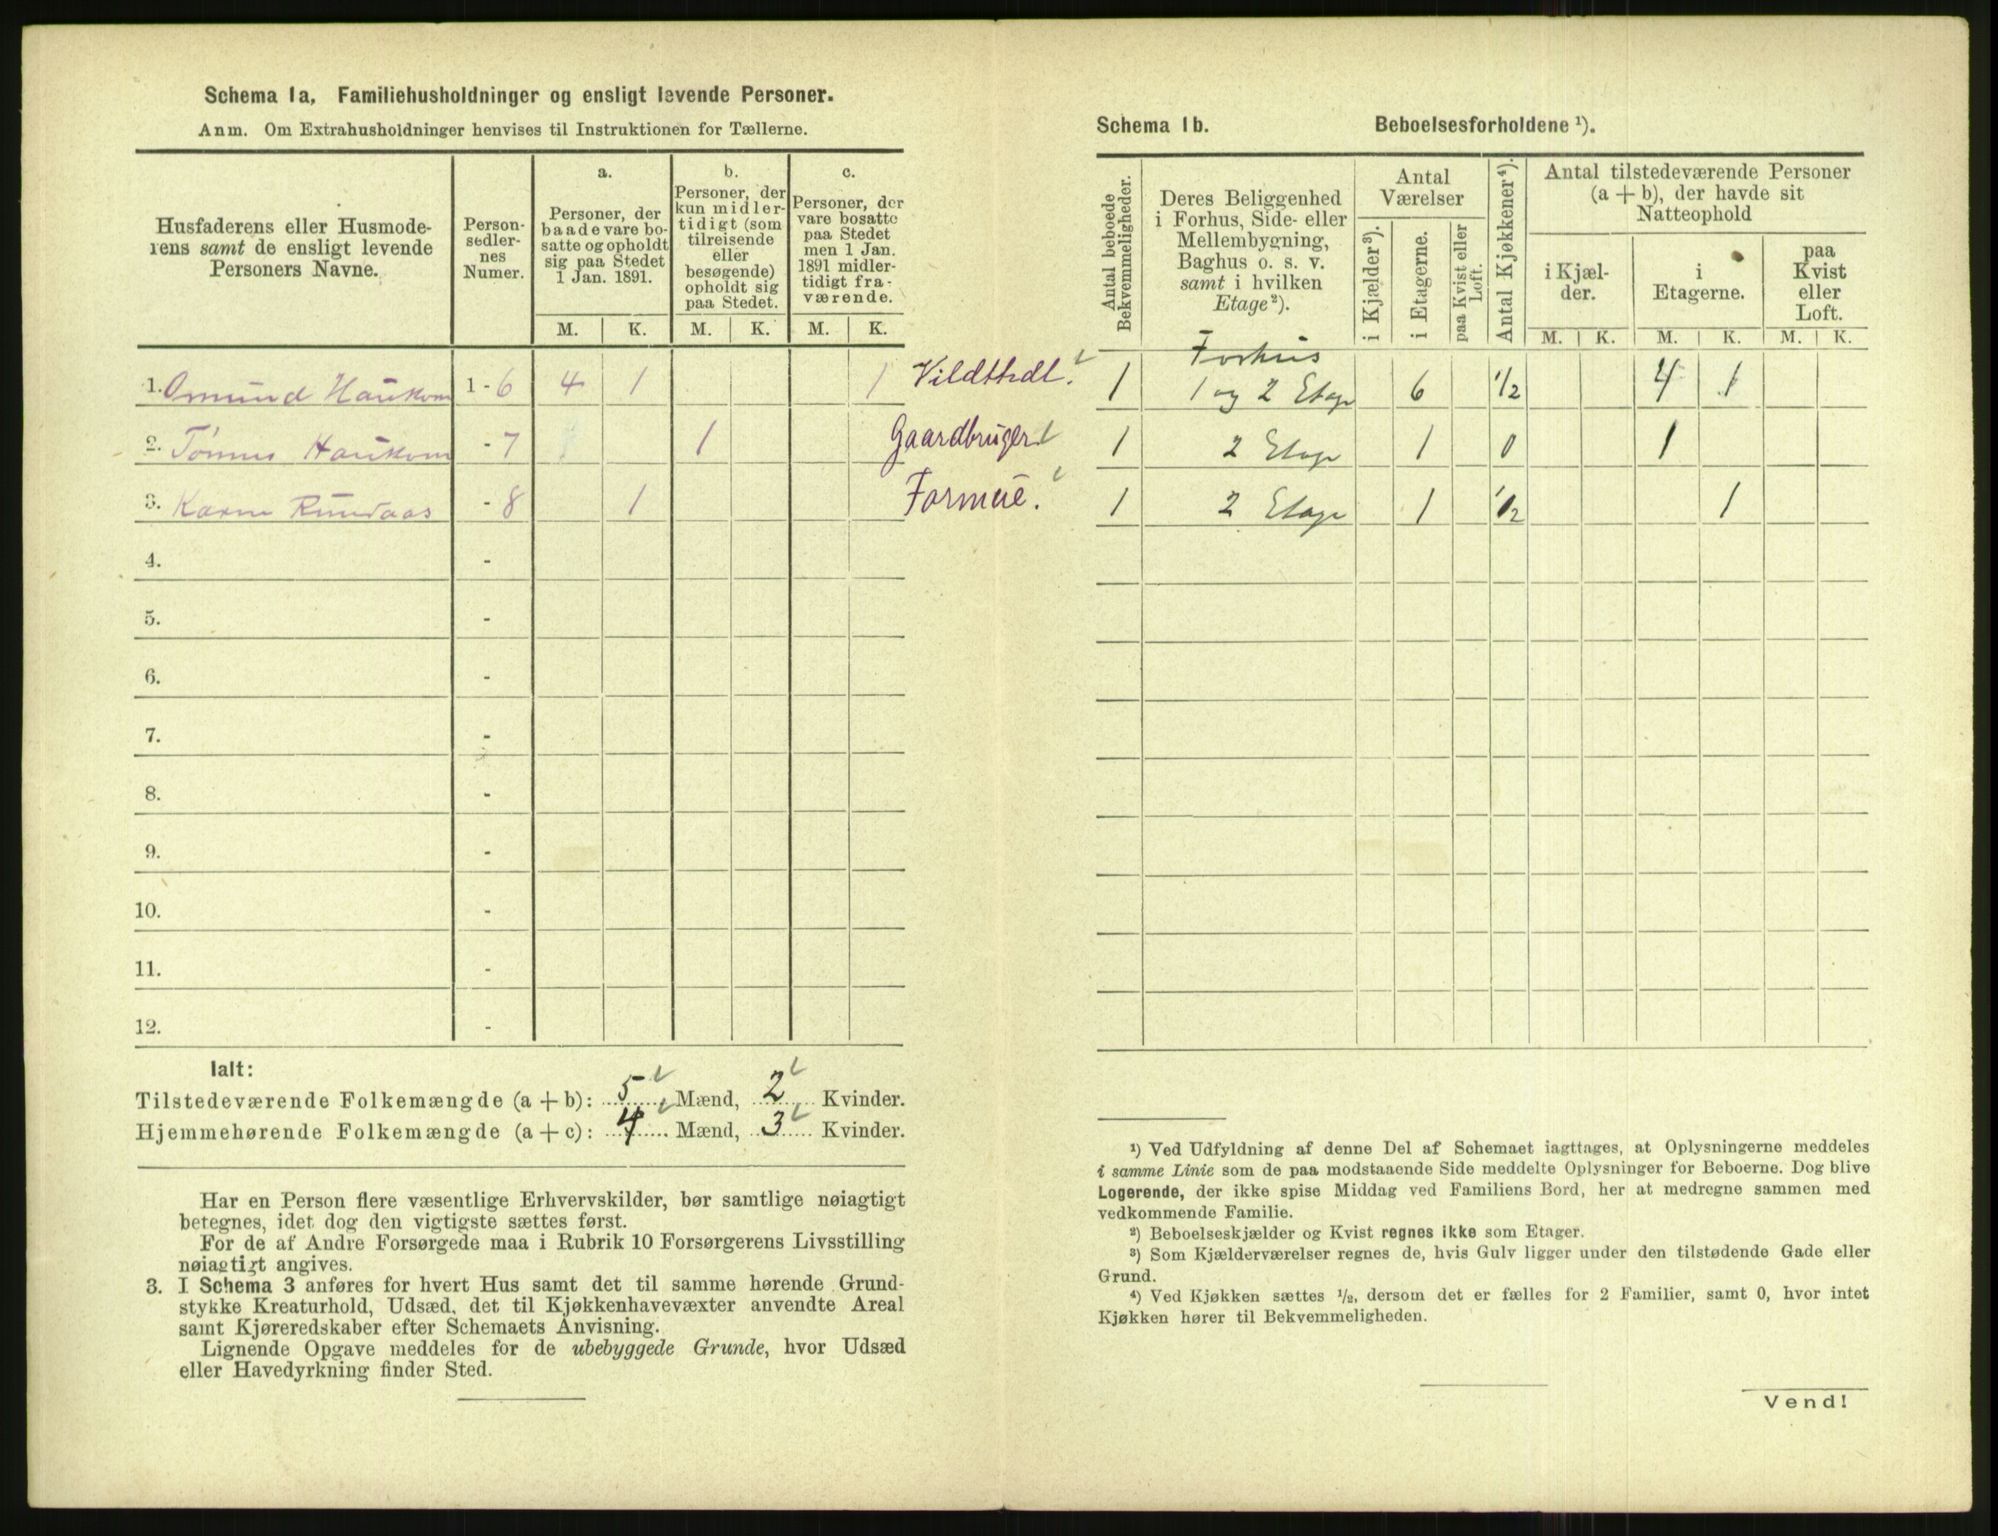 Schema 1a. Familiehusholdninger og ensligt levende Personer.
Anm. Om Extrahusholdninger henvises til Instruktionen for Tællerne.
Husfaderens eller Husmode-
rens samt de ensligt levende
Personers Navne.
Person-
sedler-
nes
Numer.
a.
Personer, der
baade vare bo-
satte og opholdt
sig paa Stedet
1 Jan. 1891.
b.
Personer, der
kun midler-
tidigt (som
tilreisende
eller
besøgende)
opholdt sig
paa Stedet.
c.
Personer, der
vare bosatte
paa Stedet
men 1 Jan.
1891 midler-
tidigt fra-
værende.
M. K. M. K. M. K.
1. Omund Haukom 1 - 6 4 1 1 Vildthdl.
2. Tónnes Haukom - 7 1 Gaardbruger
3. Karen - 8 1 Formue.
4. -
5. -
6. -
7. -
8. -
9. -
10. -
11. -
12. -
Ialt:
Tilstedeværende Folkemængde (a + b): 5 Mænd, 2 Kvinder.
Hjemmehørende Folkemængde (a + c): 4 Mænd, 3 Kvinder.
Har en Person flere væsentlige Erhvervskilder, bør samtlige nøiagtigt
betegnes, idet dog den vigtigste sættes først.
For de af Andre Forsørgede maa i Rubrik 10 Forsørgerens Livsstilling
nøiagtigt angives.
3. I Schema 3 anføres for hvert Hus samt det til samme hørende Grund-
stykke Kreaturhold, Udsæd, det til Kjøkkenhavevæxter anvendte Areal
samt Kjøreredskaber efter Schemaets Anvisning.
Lignende Opgave meddeles for de ubebyggede Grunde, hvor Udsæd
eller Havedyrkning finder Sted.
Schema 1b. Beboelsesforholdene ¹).
Antal beboede
Bekvemmeligheder.
Deres Beliggenhed
i Forhus, Side- eller
Mellembygning,
Baghus o. s. v.
samt i hvilken
Etage²).
Antal
Værelser
i Kjælder³).
i Etagerne.
paa Kvist eller
Loft.
Antal Kjøkkener⁴).
Antal tilstedeværende Personer
(a + b), der havde sit
Natteophold
i Kjæl-
der.
i
Etagerne.
paa
Kvist
eller
Loft.
M. K. M. K. M. K.
Forhus
1 1 og 2 Etage 6 1/2 4 1
1 2 Etage 1 0 1
1 2 Etage 1 1/2 1
¹) Ved Udfyldning af denne Del af Schemaet iagttages, at Oplysningerne meddeles
i samme Linie som de paa modstaaende Side meddelte Oplysninger for Beboerne. Dog blive
Logerende, der ikke spise Middag ved Familiens Bord, her at medregne sammen med
vedkommende Familie.
²) Beboelseskjælder og Kvist regnes ikke som Etager.
³) Som Kjælderværelser regnes de, hvis Gulv ligger under den tilstødende Gade eller
Grund.
⁴) Ved Kjøkken sættes ½, dersom det er fælles for 2 Familier, samt 0, hvor intet
Kjøkken hører til Bekvemmeligheden.
Vend!